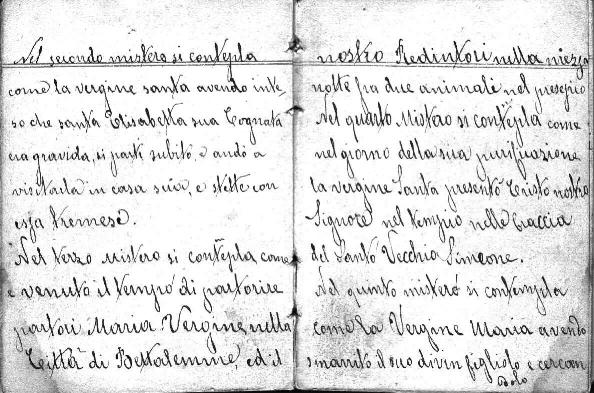 Nel secondo mistero si contepla
come la vergine santa avendo inte-
so che santa Elisabetta sua Cognata
era gravida, si partì subito, e andò a
visitarla in casa sua, e stette con
essa tremese.
Nel terzo mistero si contepla come
e venuto il tempo di partorire
partori Maria Vergine nella
Città di Bettalemme, ed il
nostro Redintori nella mezza
notte fra due animali nel presepio
Nel quarto Mistero si contepla come
nel giorno della sua purificazione
la vergine Santa presentò Cristo nostro
Signore nel tempio nelle braccia
del Santo Vecchio Simeone.
Nel quinto mistero si contempla
come la Vergine Maria avendo
smarrito il suo divin figliolo e cercan
dolo